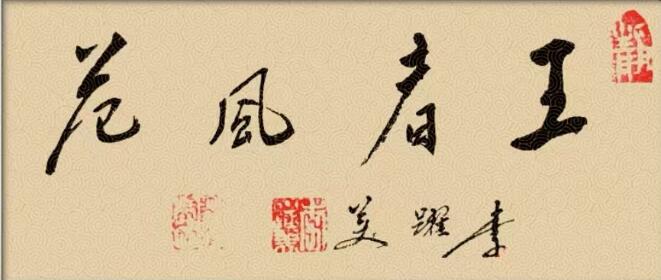 王者風范
李躍美